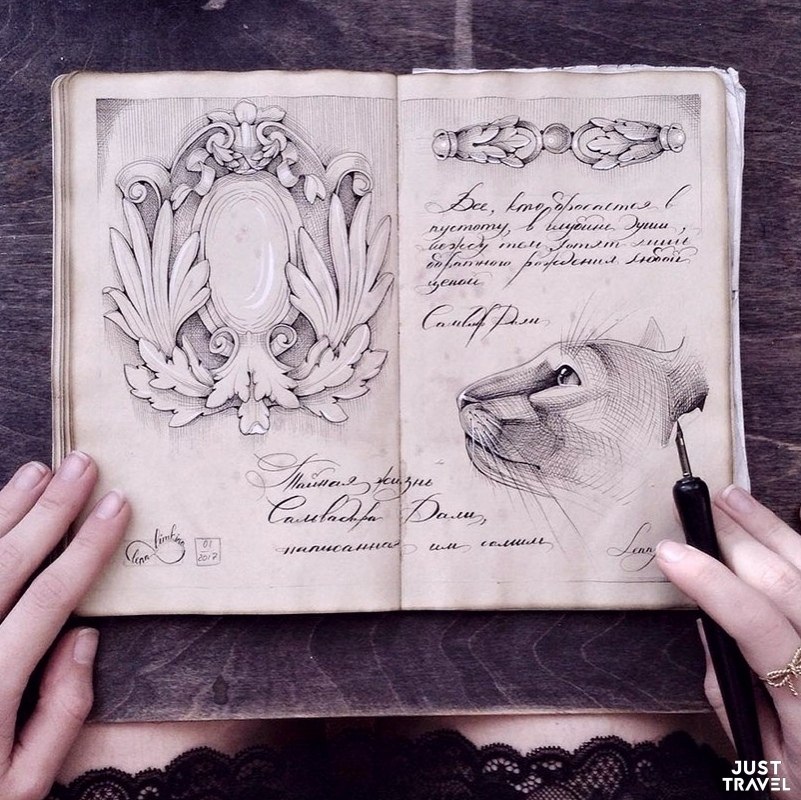 Все, кто бросается в
пустоту, в глубине души,
между тем хотят лишь
обратного рождения любой
ценой
Сальвадор Дали
Тайная жизнь
Сальвадора Дали,
написанная им самим
lena limkina
01
2017
JUST
TRAVEL